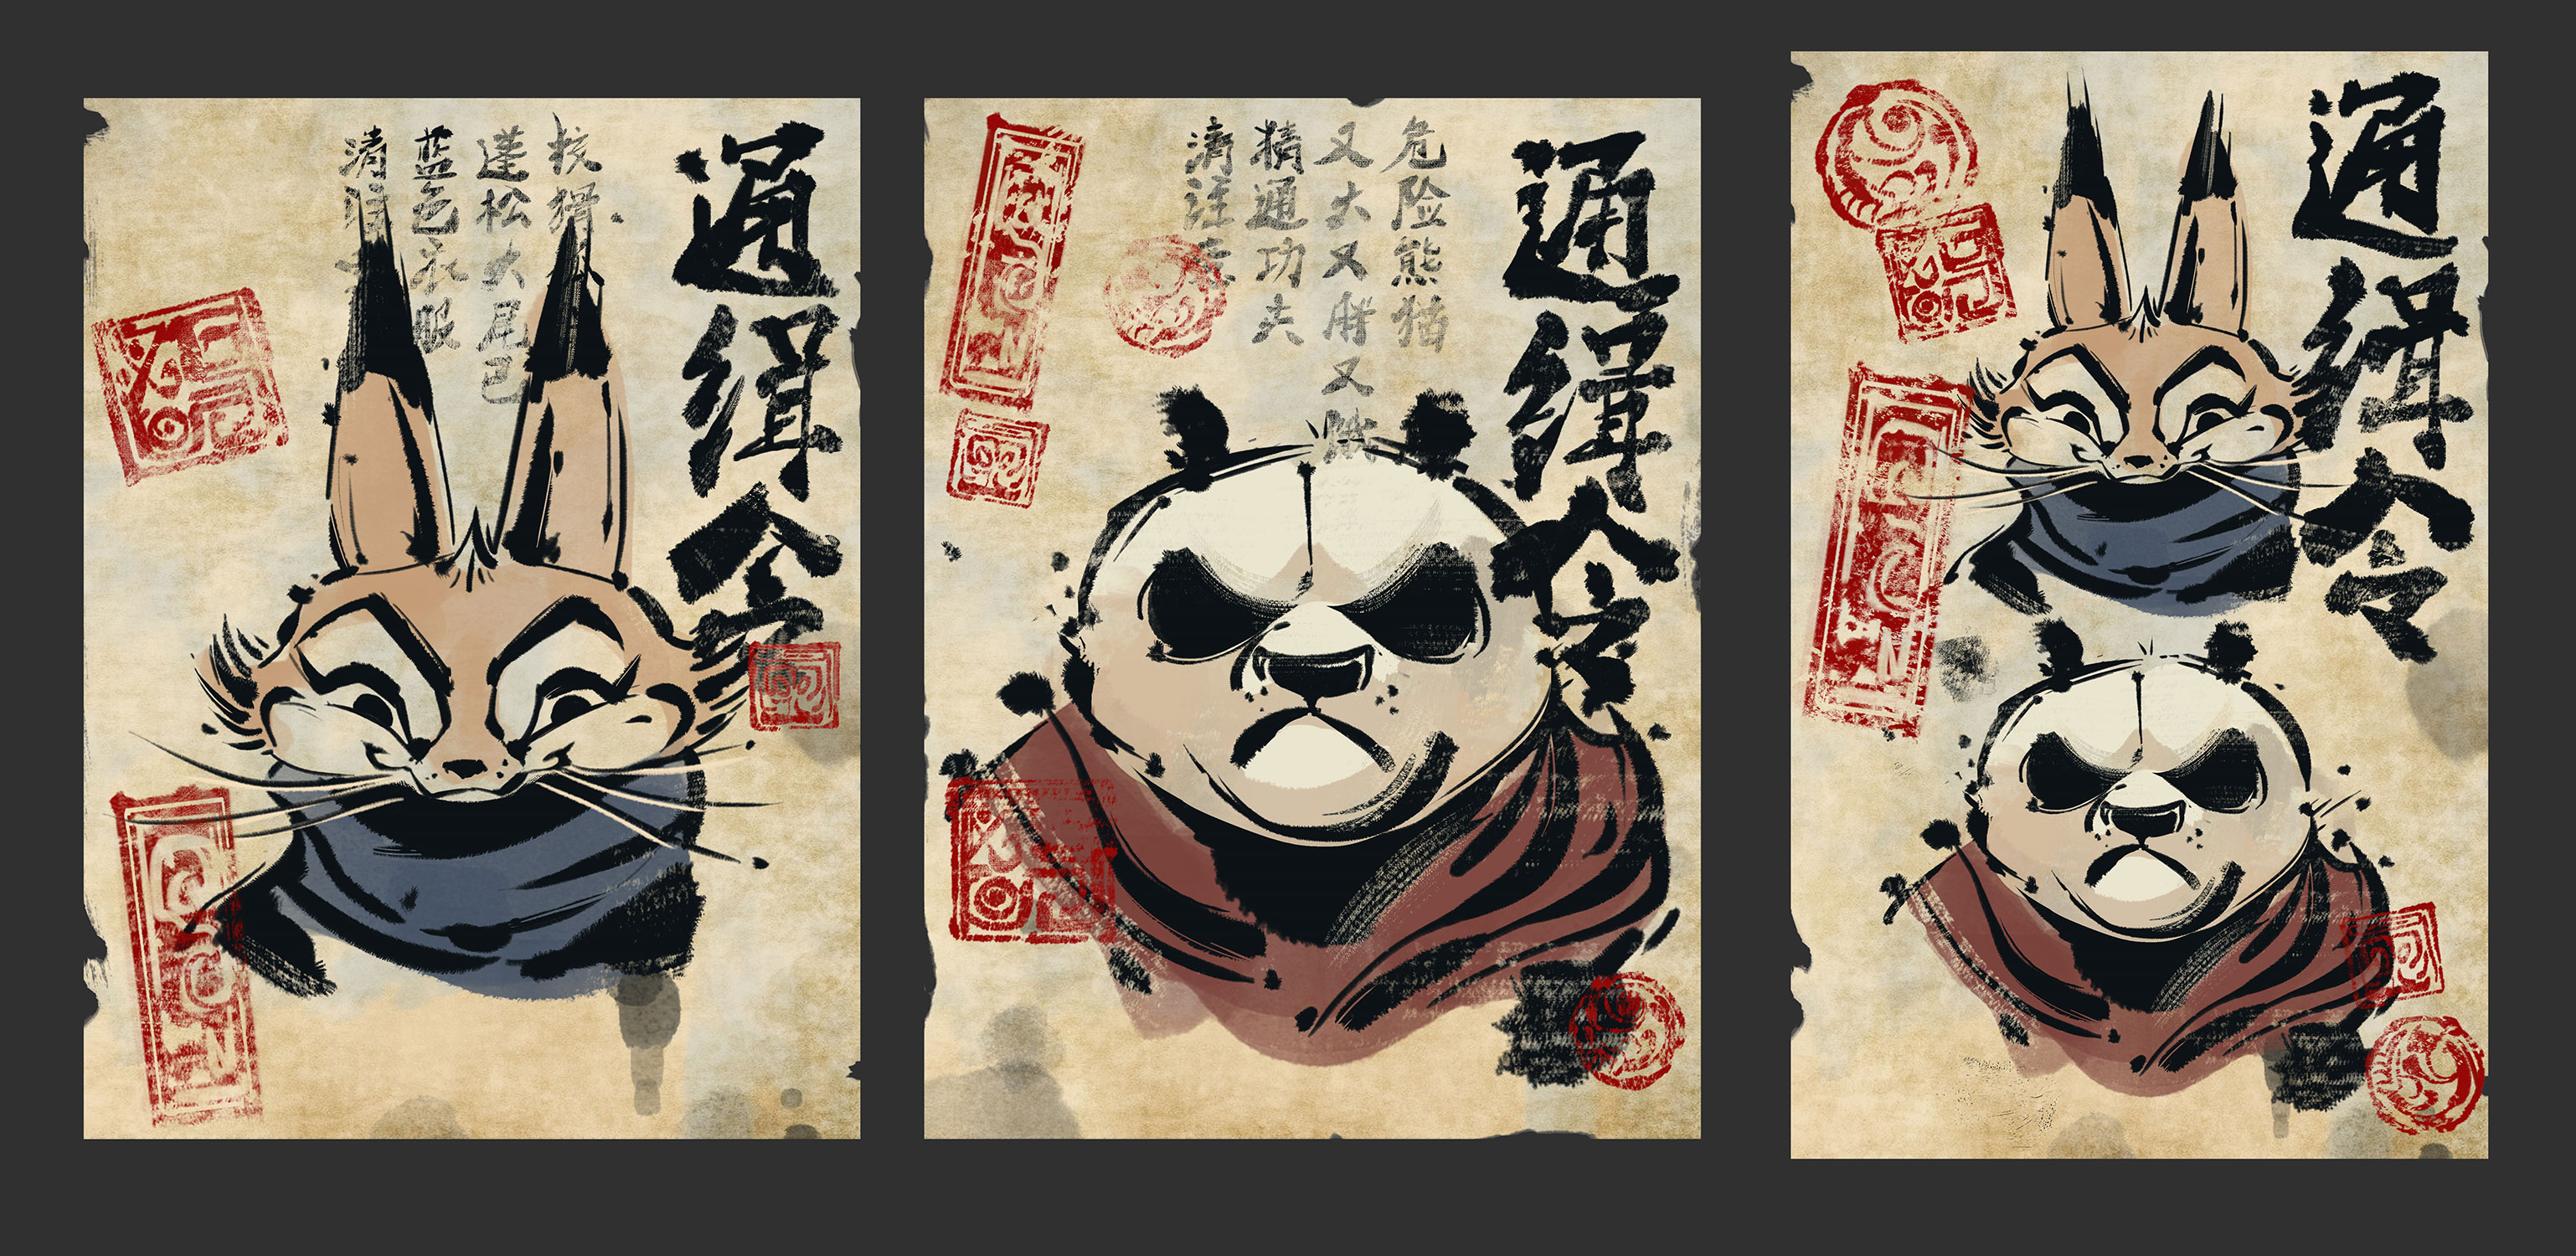 通缉令
狡猾
蓬松大尾巴
蓝色衣服
通缉令
危险熊猫
又大又胖又饿
精通功夫
清注意
通缉令